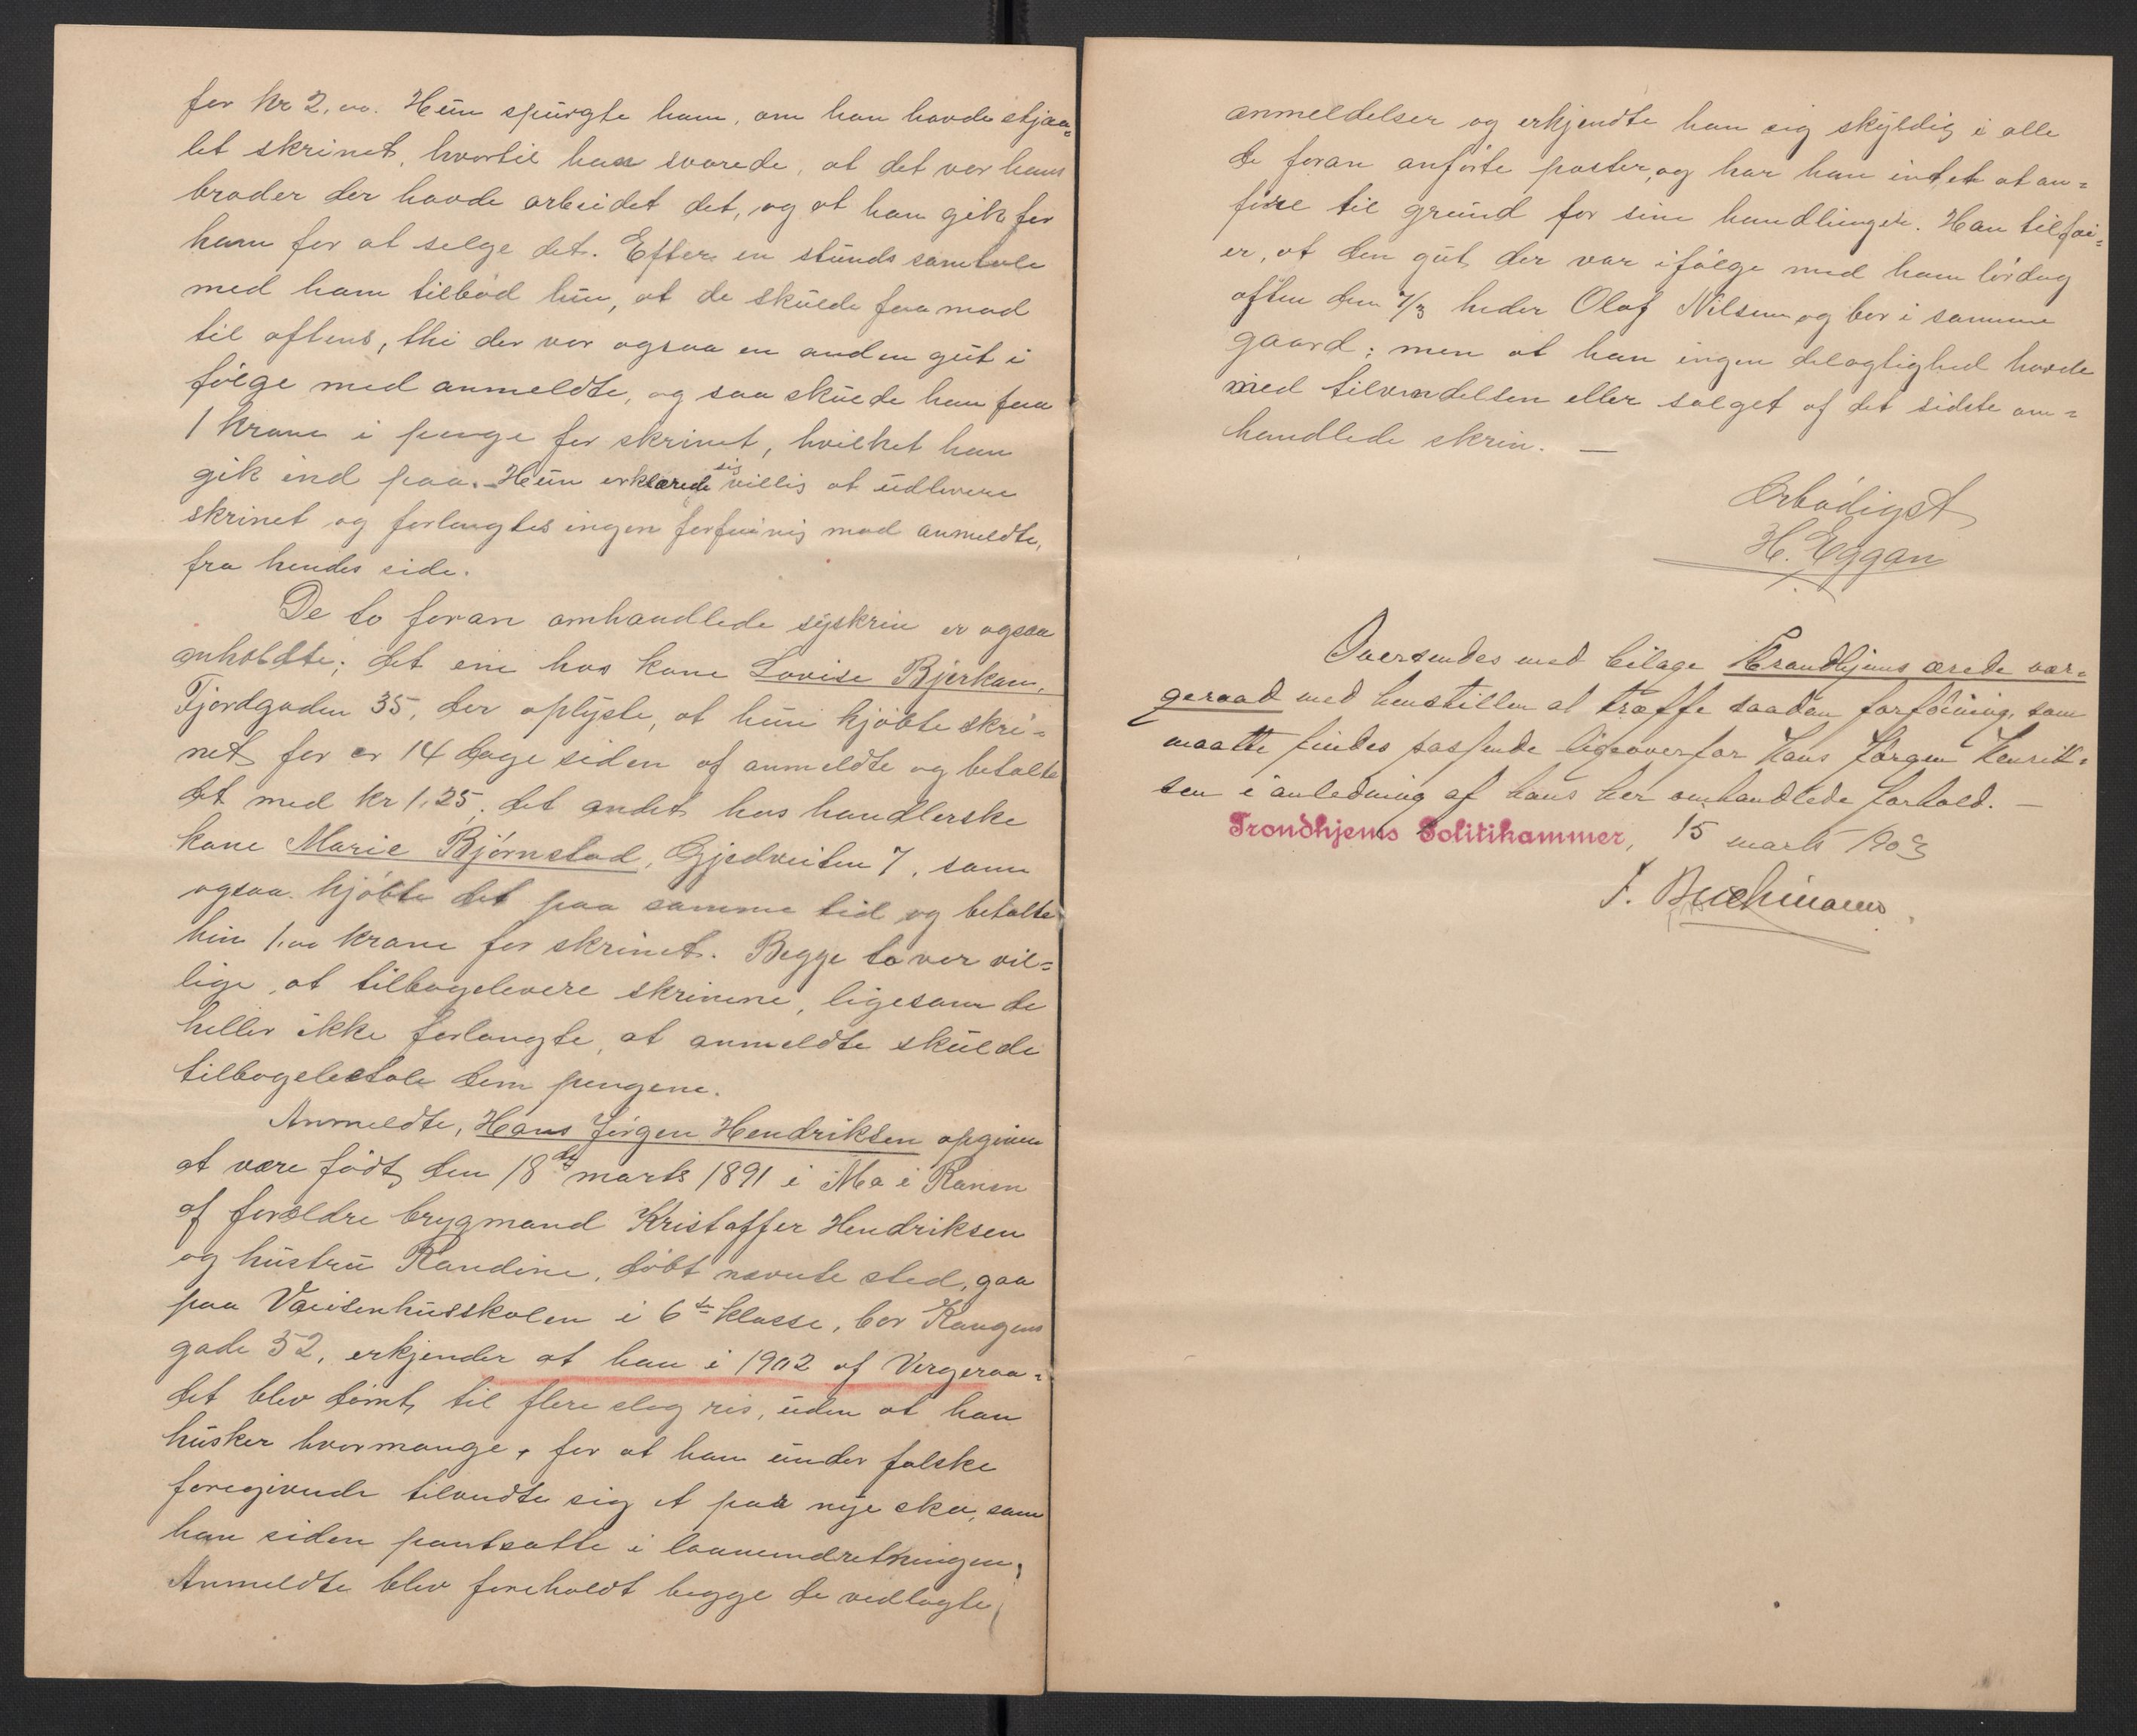 for Kr 2,00. Hun spurgte ham, om han havde stjaa=
let skrinet, hvortil han svarede, at det var hans
broder der havde arbeidet det, og at han gik for
ham for at selge det. Efter en stunds samtale
med ham tilbød hun, at de skulde faa mad
til aftens, thi der var ogsaa en anden gut i
følge med anmeldte, og saa skulde han faa
1 krone i penge for skrinet, hvilket han
gik ind paa. Hun erklærede sig villig at udlevere
skrinet og forlangtes ingen forføinig mod anmeldte,
fra hendes side.
De to foran omhandlede syskrin er ogsaa
anholdte; det ene hos kone Lovise Bjerkan,
Fjordgaden 35, der oplyste, at hun kjøbte skri=
net for cr 14 dage siden af anmeldte og betalte
det med kr 1,25, det andet hos handlerske
kone Marie Bjørnstad, Gjedveiten 7, som
ogsaa kjøbte det paa samme tid og betalte
hun 1,00 krone for skrinet. Begge to var vil=
lige at tilbagelevere skrinene, ligesom de
heller ikke forlangte, at anmeldte skulde
tilbagebetale dem pengene.
Anmeldte, Hans Jørgen Hendriksen opgiver
at være født den 18de marts 1891 i Mo i Ranen
af forældre brygmand Kristoffer Hendriksen
og hustru Randine, døbt nævnte sted, gaa
paa Vaisenhusskolen i 6te klasse, bor Kongens
gade 52, erkjender at han i 1902 af Vergeraa=
det blev dømt til flere slag ris, uden at han
husker hvormange, for at han under falske
foregivende tilvendte sig et par nye sko, som
han siden pantsatte i laaneindretningen.
Anmeldte blev foreholdt begge de vedlagte
anmeldelser og erkjendte han sig skyldig i alle
de foran anførte poster, og har han intet at an=
føre til grund for sine handlinger. Han tilføi=
er, at den gut der var ifølge med ham lørdag
aften den 7/3 heder Olaf Nilsen og bor i samme
gaard; men at han ingen delagtighed havde
med tilvendelsen eller salget af det sidste om=
handlede skrin. —
Ærbødigst
H. Eggan
Oversendes med bilage Trondhjems ærede vær=
geraad med henstillen at træffe saadan forføining, som
maatte findes passende ligeoverfor Hans Jørgen Henrik=
sen i anledning af hans her omhandlede forhold. —
Trondhjems Politikammer, 15 marts 1903